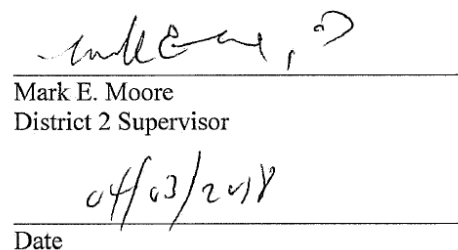 Mark E. Moore
District 2 Supervisor
04/03/2018
Date